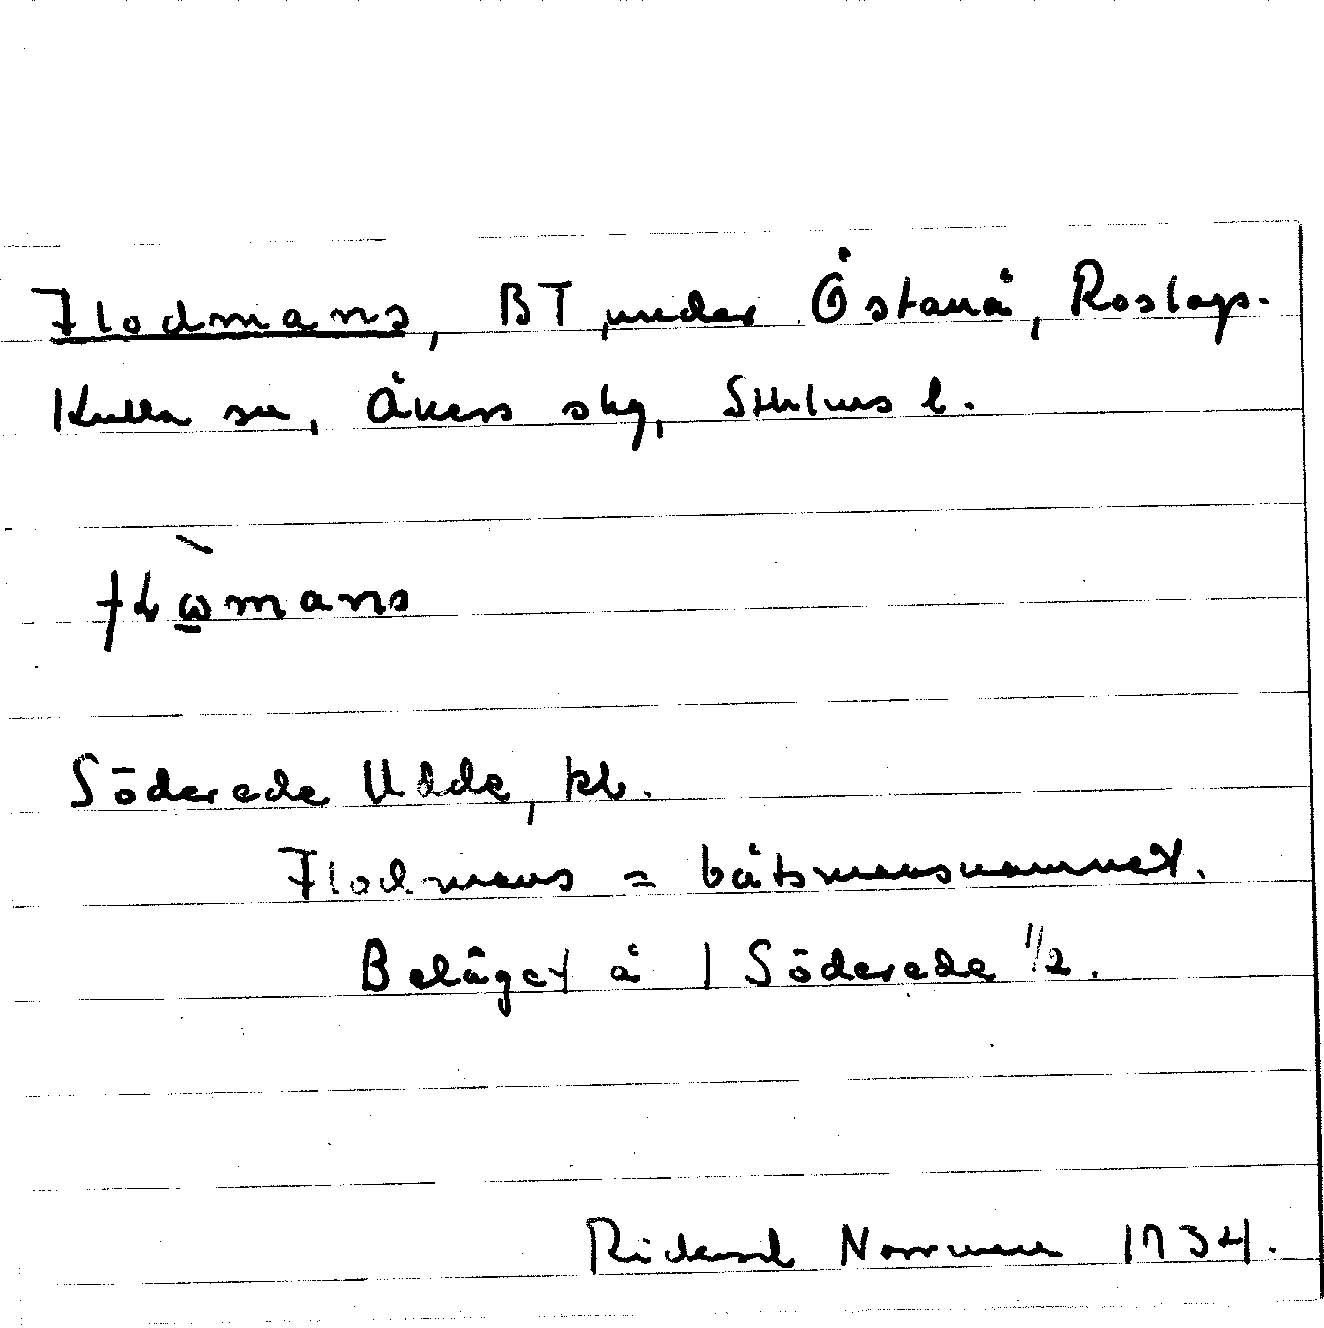 Flodmans, BT under Östanå, Roslags-
Kulla sn, Åkers skg, Sthlms l.
flωmans
Söderede Udde, kb.
Flodmans = båtsmansnamnet.
Beläget å 1 Söderede 1/2.
Rickard Norrman 1934.